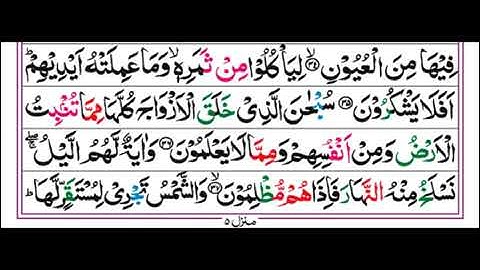 فِيْهَا مِنَ الْعُيُوْنِ ۙ۝۳۴ لِيَاْكُلُوْا مِنْ ثَمَرِهٖ ۙ وَمَا عَمِلَتْهُ اَيْدِيْهِمْ ؕ
اَفَلَا يَشْكُرُوْنَ ۝۳۵ سُبْحٰنَ الَّذِيْ خَلَقَ الْاَزْوَاجَ كُلَّهَا مِمَّا تُنْۢبِتُ
الْاَرْضُ وَمِنْ اَنْفُسِهِمْ وَمِمَّا لَا يَعْلَمُوْنَ ۝۳۶ وَاٰيَةٌ لَّهُمُ الَّيْلُ ۖۚ
نَسْلَخُ مِنْهُ النَّهَارَ فَاِذَا هُمْ مُّظْلِمُوْنَ ۙ۝۳۷ وَالشَّمْسُ تَجْرِيْ لِمُسْتَقَرٍّ لَّهَا ؕ
منزل ۵